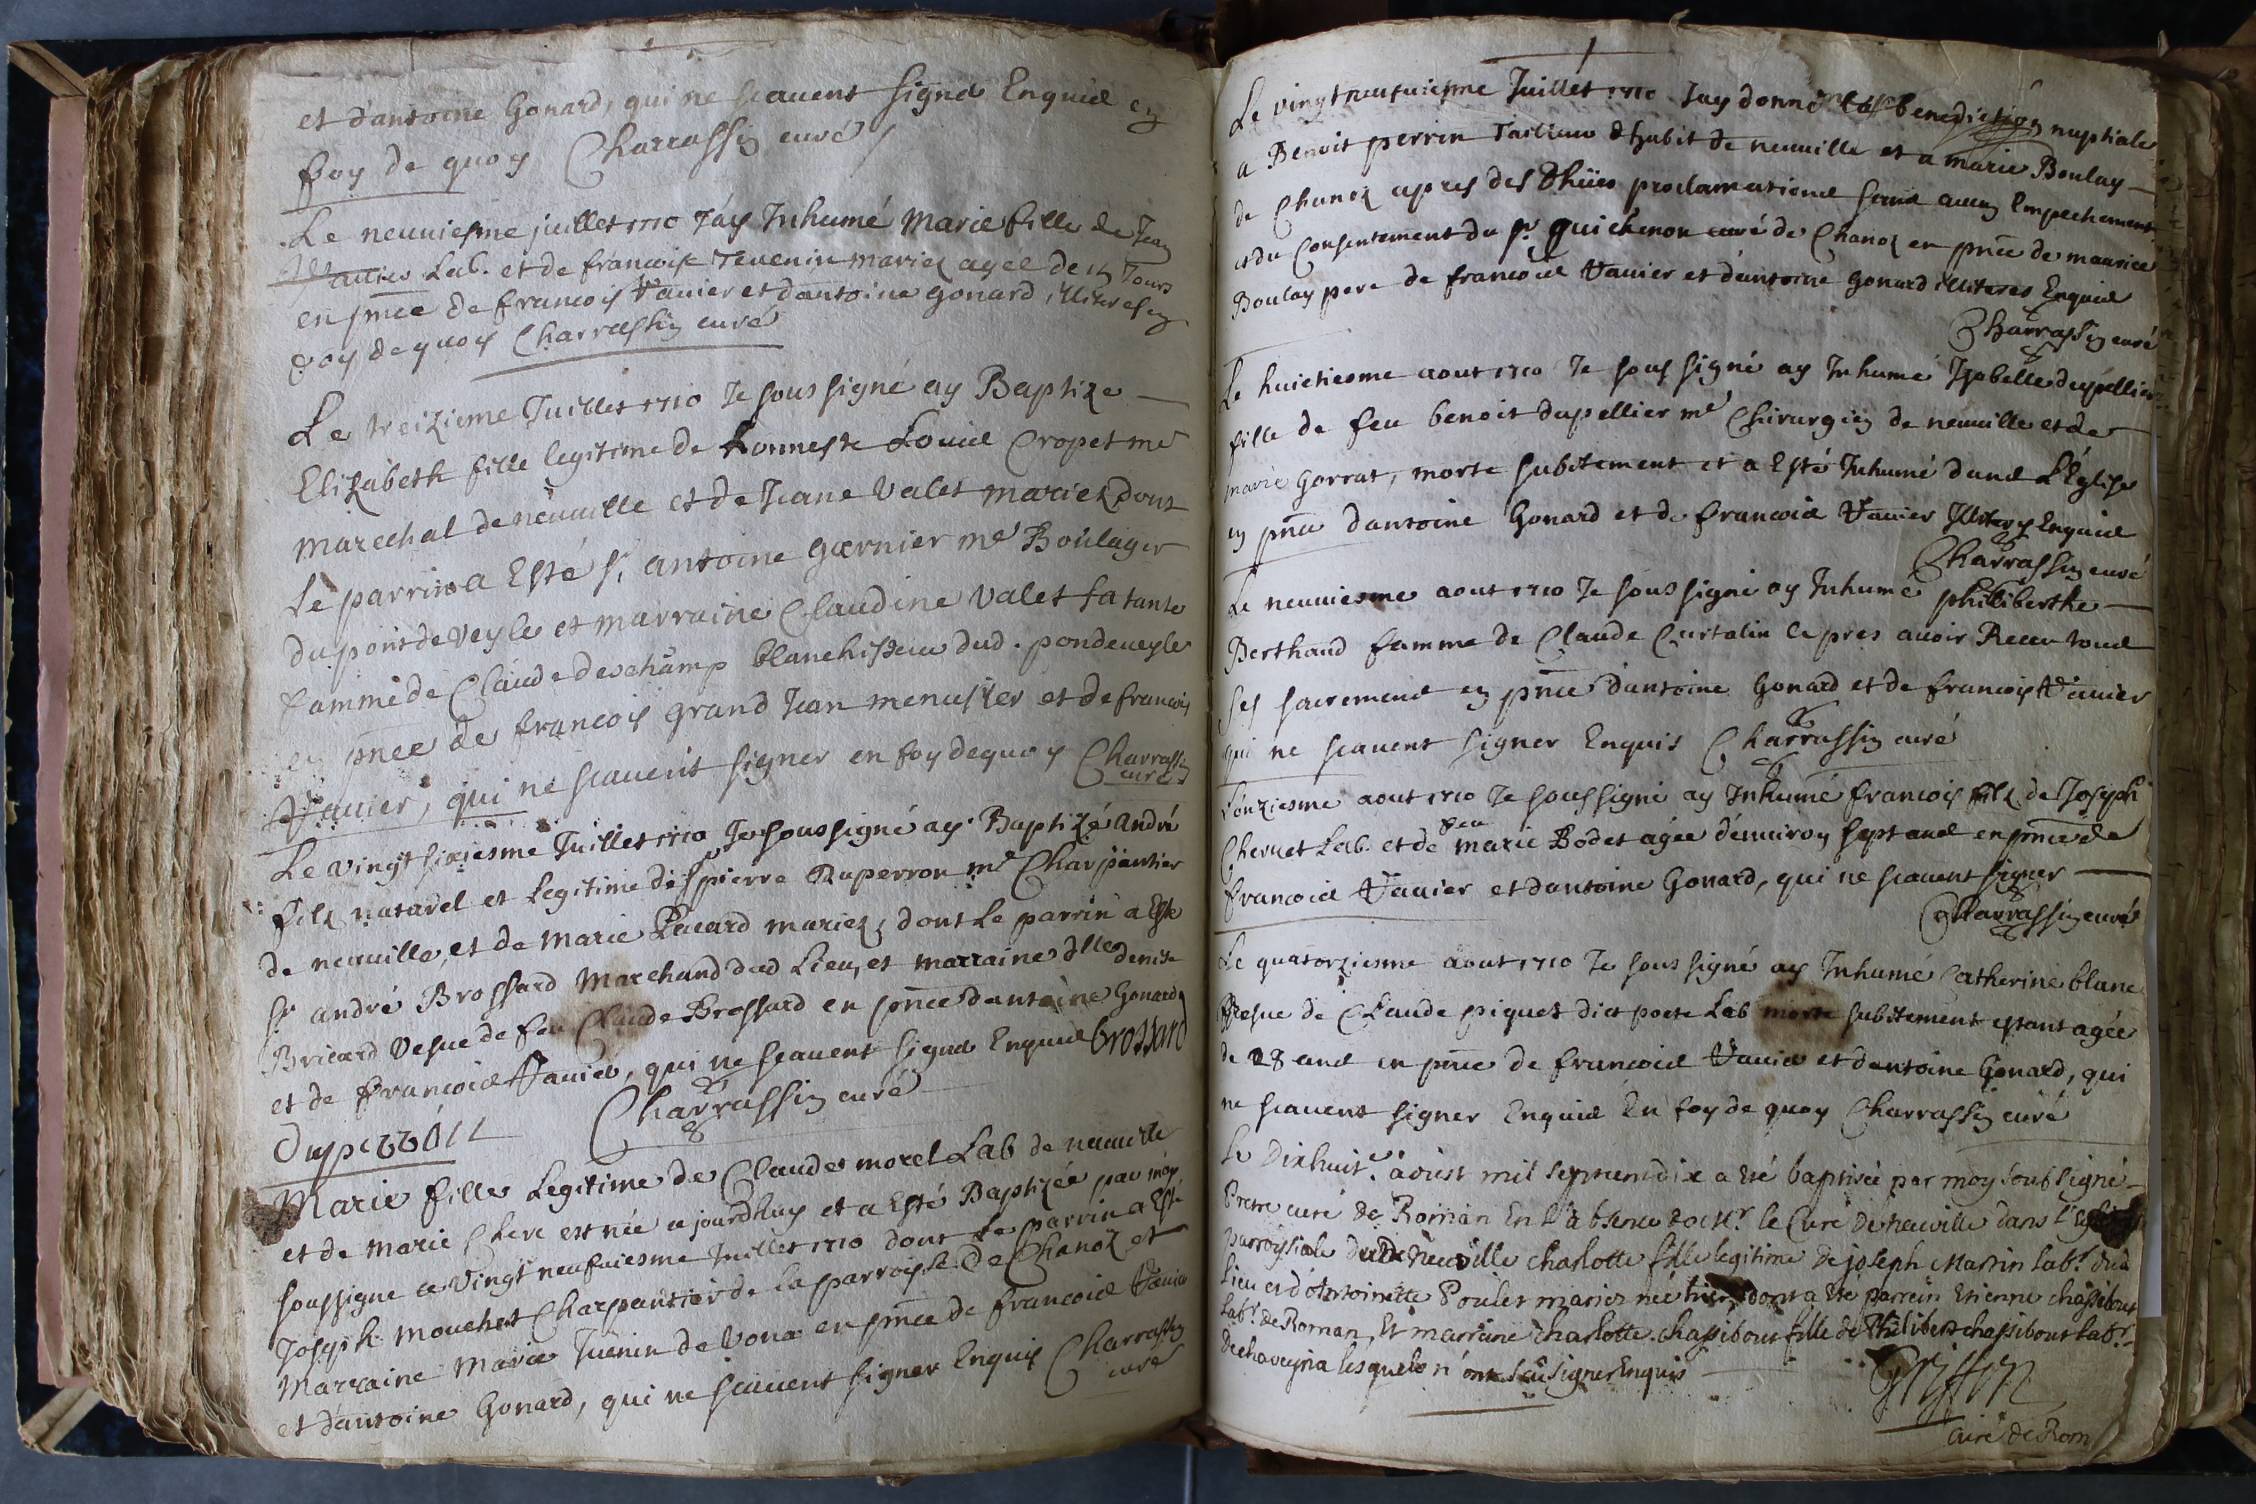 et d'antoine Gonard, qui ne scavent signer Enquis en
foy de quoy Charrassin curé
Le neuviesme juillet 1710 J'ay Inhumé Marie fille de Jean
Vavier Lab. et de francoise Tevenin mariez agee de 15 Jours
en pnce de francois Vavier et d'antoine gonard, illiteres en
foy de quoy Charrassin curé
Le treizieme Juillet 1710 Je soussigné ay Baptize
Elizabeth fille legitime de honneste Louis Cropet me
marechal de neuville et de Jeane Valet mariez dont
Le parrin a Esté sr. antoine garnier me Boulager
du pont de Veyle et marraine Claudine Valet sa tante
famme de Claude deschamp blanchisseur dud. pondeveyle
en pnce de francois grand Jean menusier et de francois
Vavier, qui ne scavent signer en foy de quoy Charrassin
curé
Le vingt sixiesme Juillet 1710 Je soussigné ay Baptizé andré
filz naturel et Legitime de sr pierre Duperron me Charpantier
de neuville, et de Marie Pacard mariez, dont Le parrin a Esté
sr andré Brossard Marchand dud Lieu, et marraine dlle denise
Bricard Vefue de feu Claude Brossard en pnce d'antoine Gonard
et de francois Vavier, qui ne scavent signer Enquis brossard
Charrassin curé
Duperron
Marie fille Legitime de Claude morel Lab de neuville
et de marie Clere est née ajourdhuy et a Esté Baptizée par moy
soussigne ce Vingt neufuiesme Juillet 1710 dont Le parrin a Esté
Joseph mouchet Charpantier de la parroisse de Chanoz et
Marraine Marie Tuenin de Vona en pnce de francois Vavier
et d'antoine Gonard, qui ne scavent signer Enquis Charrassin
curé
Le vingt neufuiesme Juillet 1710 Jay donné la benediction nuptiale
a Benoit perrin Tailleur d'habit de neuville et a marie Boulay
de Chanoz apres des dhües proclamations sans aucun Empechement
et du Consentement du sr quichenon curé de Chanoz en pnce de maurice
Boulay pere de francois Vavier et d'antoine gonard illiteres Enquis
Charrassin curé
Le huictiesme aout 1710 Je soussigné ay Inhumé Izabelle dupellier
fille de feu benoit dupellier me Chirurgien de neuville et de
marie Gorrat, morte subitement et a Esté Inhumé dans L'Eglise
en pnce d'antoine Gonard et de francois Vavier Illiteres Enquis
Charrassin curé
Le neuviesme aout 1710 Je soussigné ay Inhumé philiberthe
Berthaud famme de Claude Curtalin apres avoir Receu tous
ses sacremens en pnce d'antoine Gonard et de francois Vavier
qui ne scavent signer Enquis Charrassin curé
L'onziesme aout 1710 Je soussigné ay Inhumé francois filz de Joseph
Chervet Lab. et de feu marie Bodet agée d'environ sept ans en pnce de
francois Vavier et d'antoine Gonard, qui ne scavent signer
Charrassin curé
Le quatorziesme aout 1710 Je soussigné ay Inhumé Catherine blanc
Vesue de Claude piquet dict poete Lab morte subitement estant agée
de 28 ans en pnce de francois Vavier et d'antoine Gonard, qui
ne scavent signer Enquis En foy de quoy Charrassin curé
Le Dixhuite aoust mil septcendix a eté baptisée par moy soubsigné
Pretre curé de Roman En l'absence de Mr. le Curé de neuville dans l'eglise
parroissiale dud neuville charlotte fille legitime de joseph Martin labr. dud
lieu et d'Antoinette Poulet mariez née hier dont a eté parrein Etienne chassibout
labr. de Roman, et marraine charlotte chassibout fille de Philibert chassibout labr.
de chaveyria lesquels n'ont scû signer Enquis
Griffon
curé de Rom